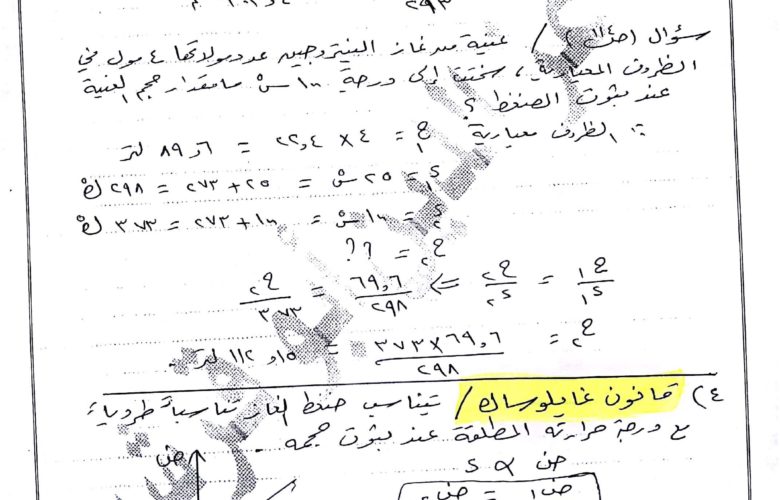 ٢٩٣
سؤال (ص١١٤) / عينة من غاز النيتروجين عدد مولاتها ٤ مول في
الظروف المعيارية ، سخنت إلى درجة ١٠٠ سْ ما مقدار حجم العينة
عند ثبوت الضغط ؟
∵ الظروف معيارية ح١ = ٤ × ٢٢,٤ = ٨٩,٦ لتر
د١ = ٢٥ سْ = ٢٥ + ٢٧٣ = ٢٩٨ كْ
د٢ = ١٠٠ سْ = ١٠٠ + ٢٧٣ = ٣٧٣ كْ
ح٢ = ؟؟
ح١/د١ = ح٢/د٢ => ٦٩,٦/٢٩٨ = ح٢/٣٧٣
ح٢ = ٣٧٣×٦٩,٦/٢٩٨ = ١١٢,١٥ لتر .
٤) قانون غايلوساك / يتناسب ضغط الغاز تناسباً طردياً
مع درجة حرارته المطلقة عند ثبوت حجمه .
ض ∝ د
ض
ض١ = ض٢